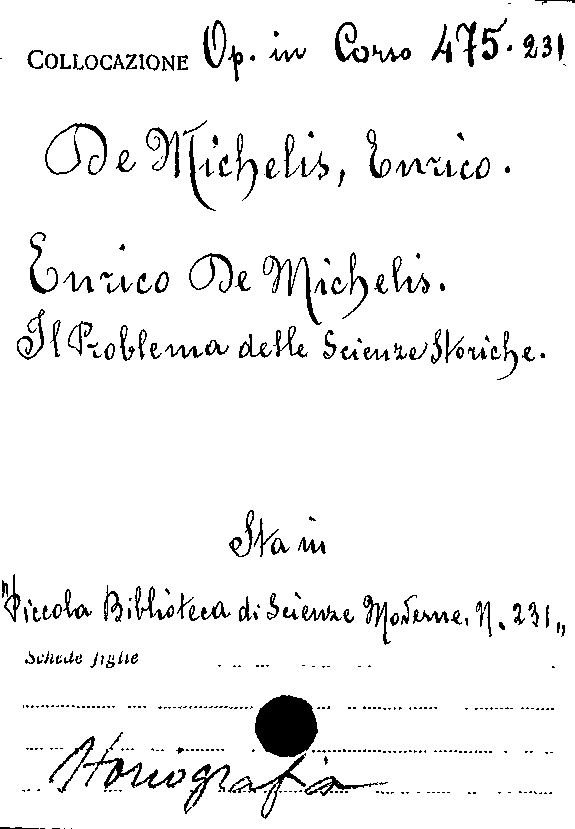 COLLOCAZIONE Op. in Corso 475. 231
De Michelis, Enrico.
Enrico De Michelis.
Il Problema delle Scienze Storiche.
Sta in
"Piccola Biblioteca di Scienze Moderne. N. 231„
Schede figlie
Storiografia